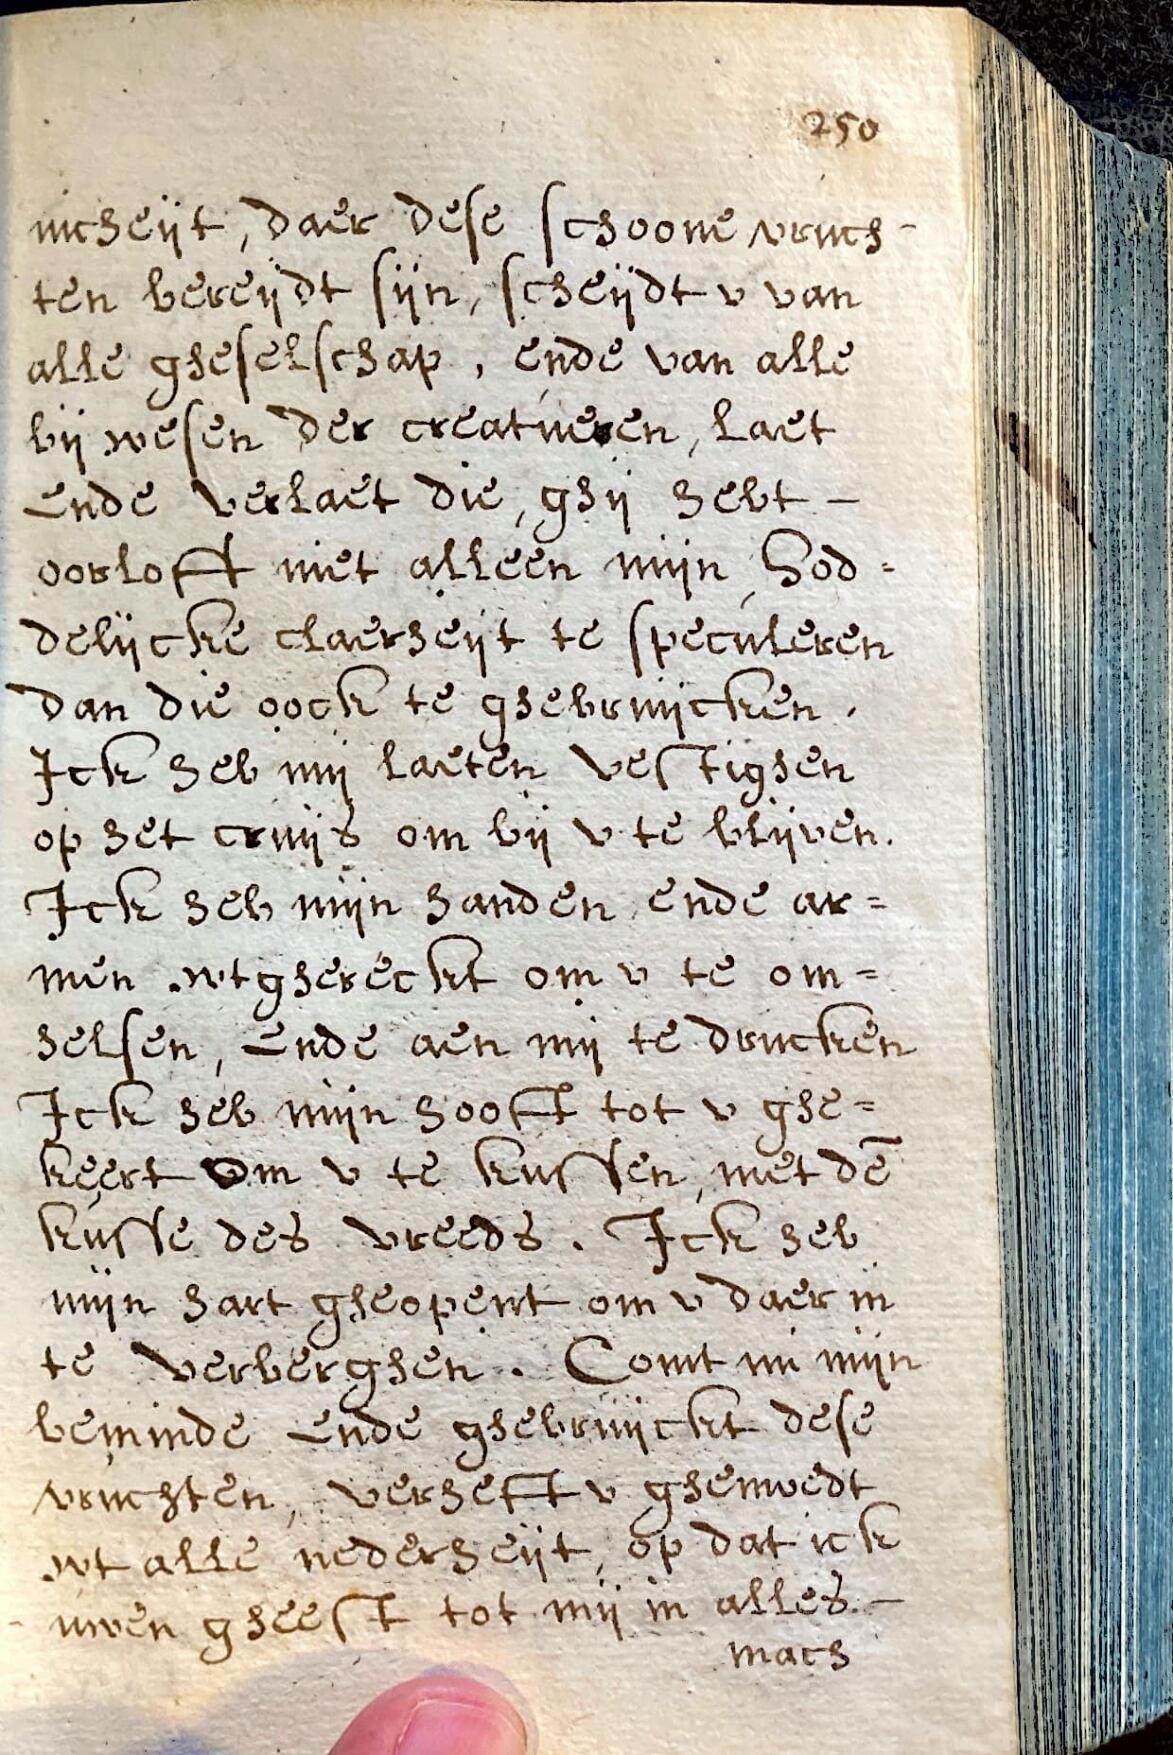 250
nicheijt, daer dese schoone vruch-
ten bereijdt sijn, scheijdt v van
alle gheselschap, ende van alle
bij wesen der creatueren, laet
ende verlaet die, ghij hebt -
oorloft niet alleen mijn, God=
delijcke claerheijt te speculeren
dan die oock te ghebruijcken.
Ick heb mij laeten vestighen
op het cruijs om bij v te blijven.
Ick heb mijn handen ende ar=
men wtghereckt om v te om=
helsen, ende aen mij te drucken
Ick heb mijn hooft tot v ghe=
keert om v te kussen, met dē
kusse des vreeds. Ick heb
mijn hart gheopent om v daer in
te verberghen. Comt nu mijn
beminde ende ghebruijckt dese
vruchten, verheft v ghemoedt
wt alle nederheijt, op dat ick
uwen gheest tot mij in alles. -
mach